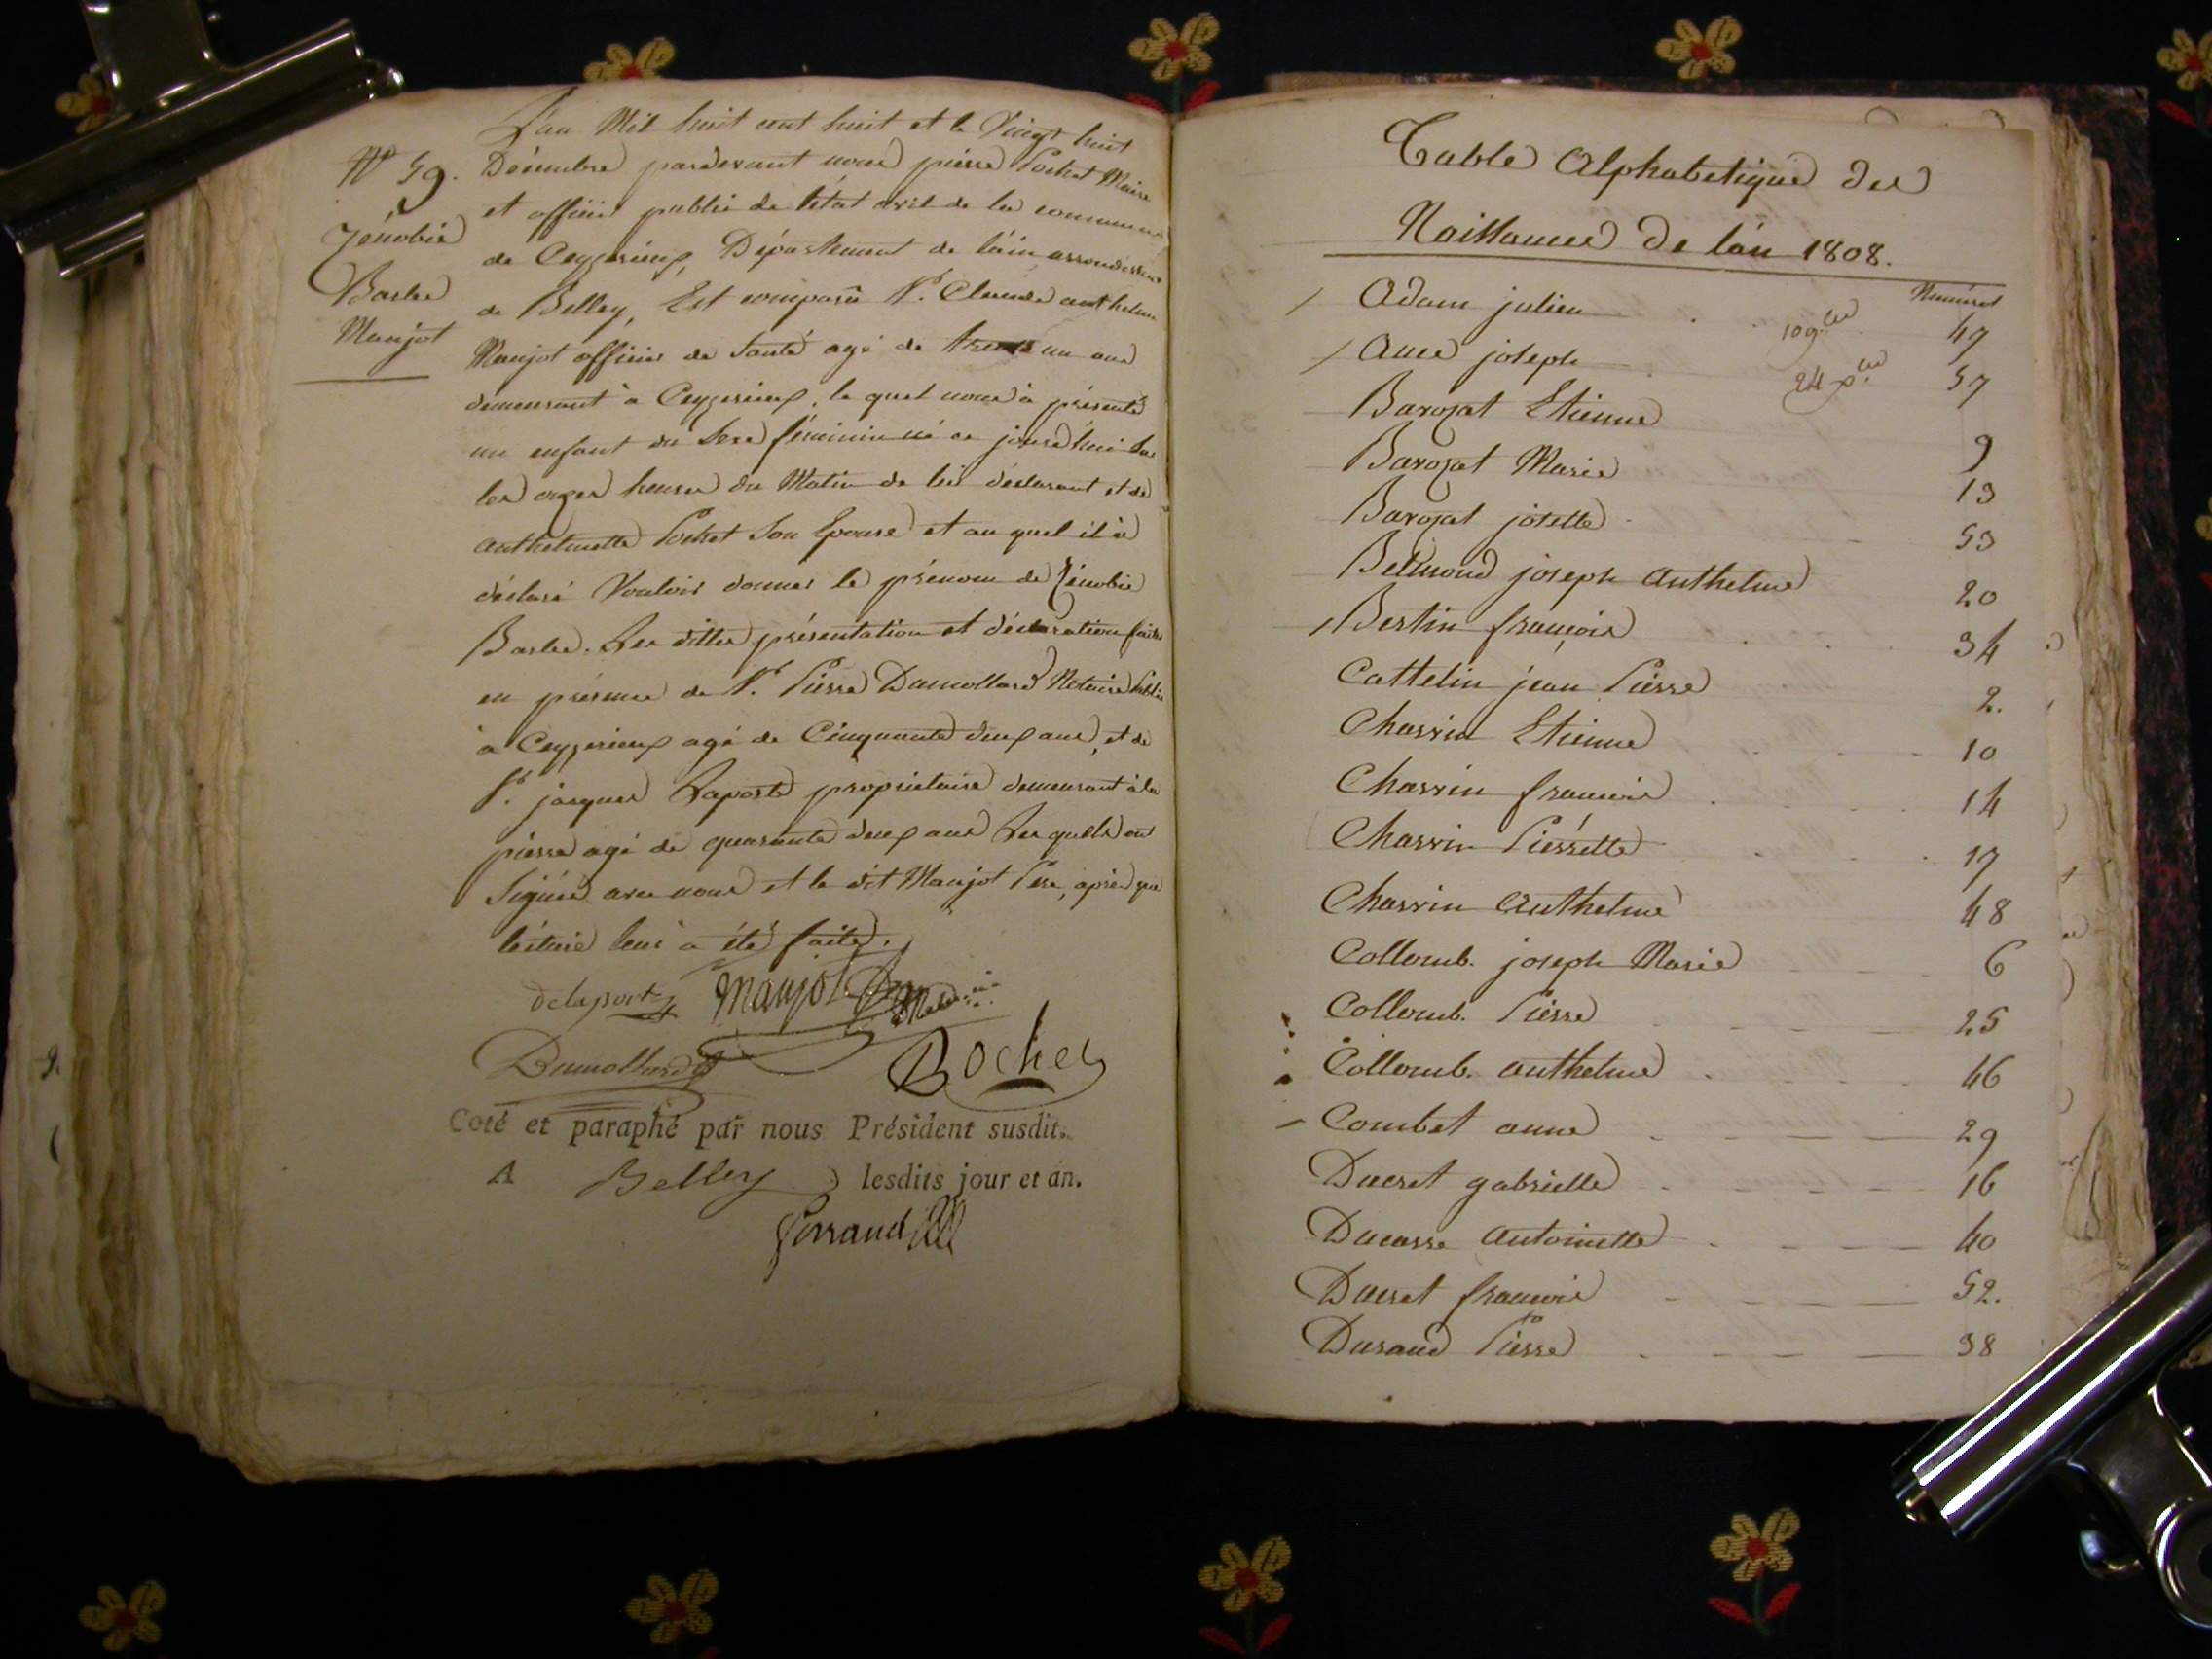 L'an Mil huit cent huit et le Vingt huit
Nº 59. Décembre pardevant nous pierre Pochet Maire
et officier public de l'état civil de la commune
de Ceyzerieux, Département de l'ain arrondissem
de Belley, Est comparu Sr. Claude anthelme
Zénobie
Barbe
Maujot
Maujot officier de Santé agé de trente un ans
demeurant à Ceyzerieux, le quel nous à présenté
un enfant du Sexe féminin né ce jourd'hui Sur
les onze heures du Matin de lui déclarant et de
anthelmette Pochet Son Epouse et au quel il à
déclaré Vouloir donner le prénom de Zénobie
Barbe. Les dittes présentation et déclaration faites
en présence de Sr. Pierre Dumollard Notaire Public
à Ceyzerieux agé de Cinquante deux ans, et de
Sr. jacques Laporte propriétaire demeurant à la
pierre agé de quarante deux ans Les quels ont
Signés avec nous et le dit Maujot Pere, après que
lecture leur a été faite.
delaporte Maujot
Dumollard
Pochet
Coté et paraphé par nous Président susdit.
A Belley lesdits jour et an.
Table Alphabetique des
Naissances De l'an 1808.
Numéros
Adam julien 47
Ance joseph 57
Barozat Etienne 9
Barozat Marie 13
Barozat josette 53
Belmond joseph Anthelme 20
Bertin françois 34
Cattelin jean Pierre 2.
Charvin Etienne 10
Charvin francois 14
Charvin Piérrette 17
Charvin Anthelme 48
Collomb. joseph Marie 6
Collomb. Pierre 25
Collomb. anthelme 46
Combet anne 29
Ducret gabrielle 16
Ducasse Antoinette 40
Ducret francois 52.
Durand Pierre 38